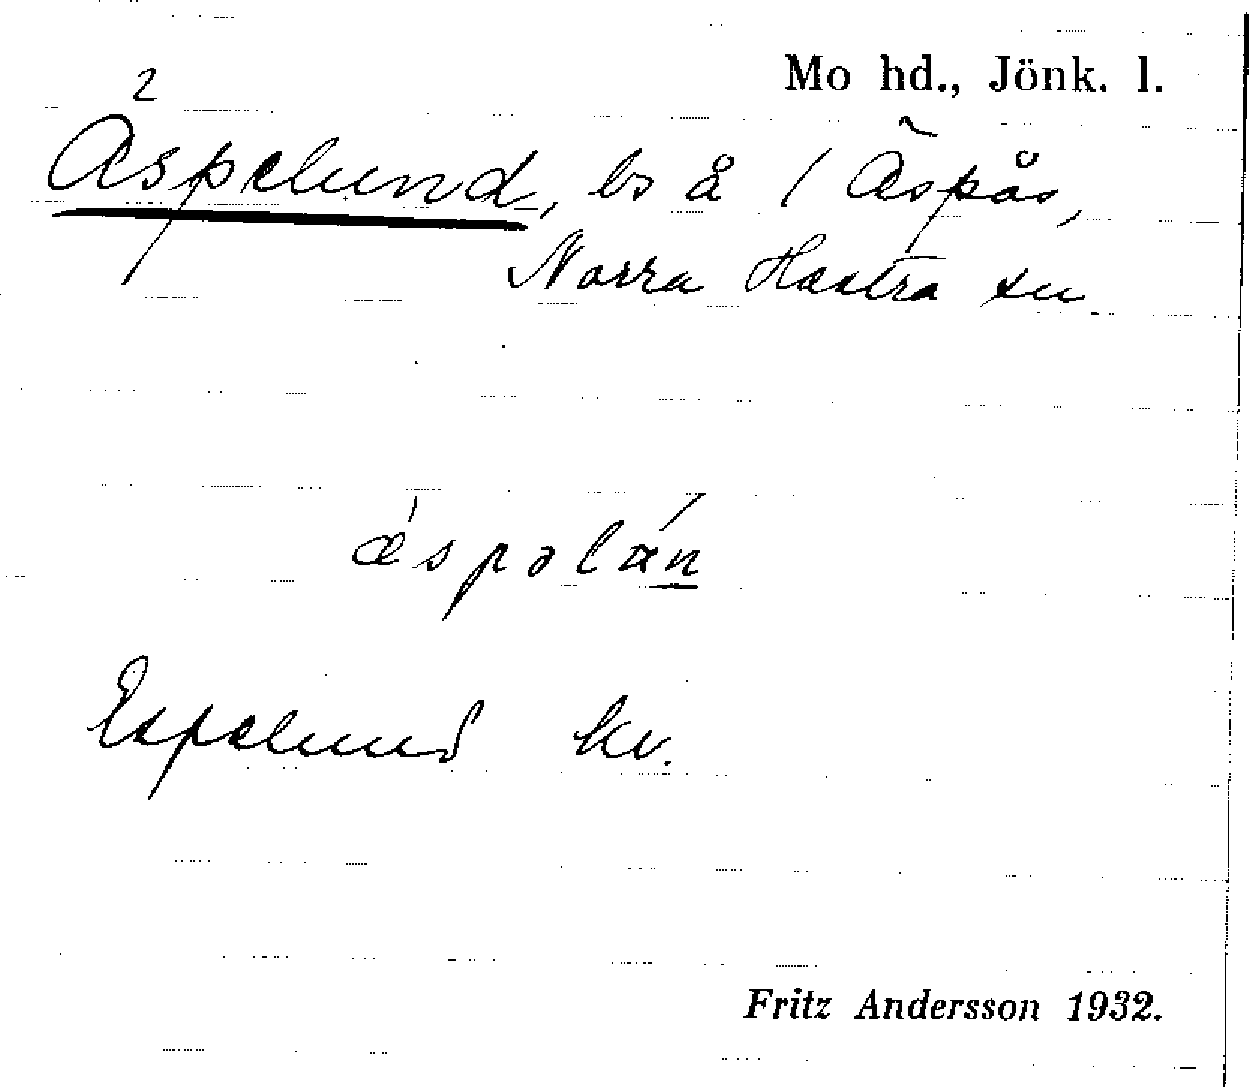 Mo hd., Jönk. l.
2
Äspelund, bs å 1 Äspås,
Norra Hestra sn
ǽspəlán
Espelund kv.
Fritz Andersson 1932.